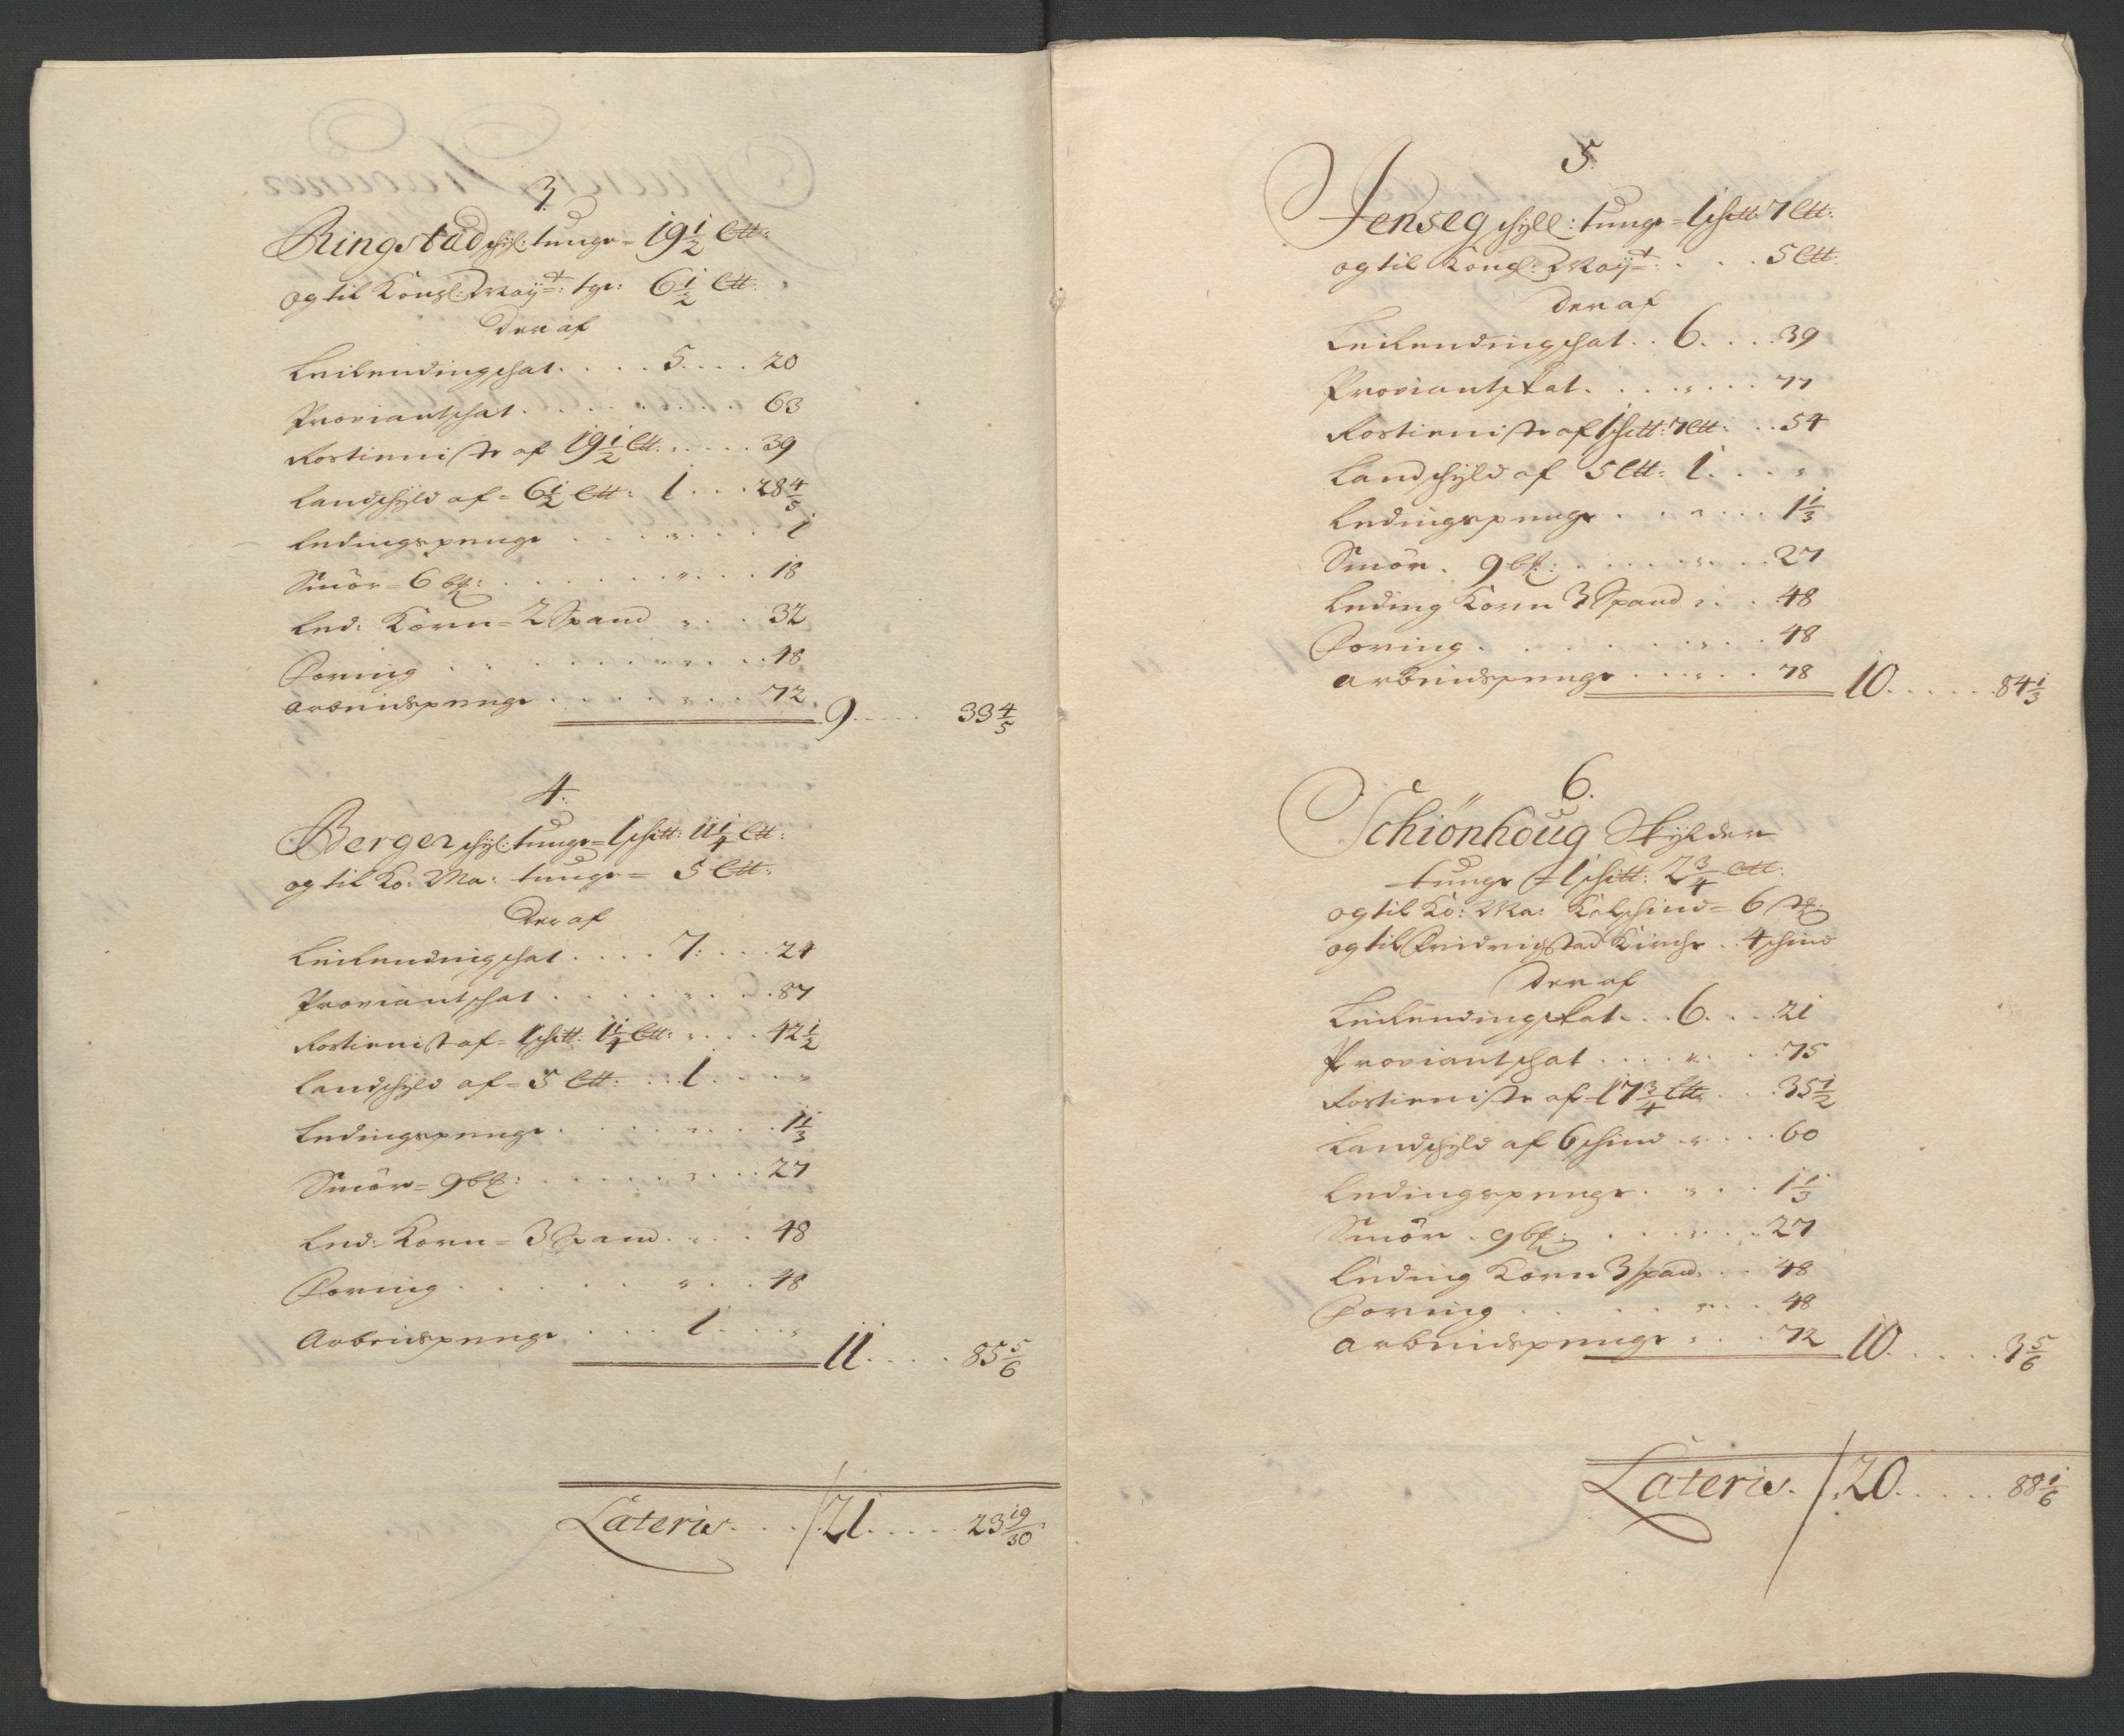 3.
Ringstad schyl: tunge = 19 1/2 Ltt:
og til Kongl: Mayt: tge: 6 1/2 Ltt:
Der af
Leilendingschat . . . . 5 . . . . 20
Proviantschat . . . . . . . . . 63
Rostieniste af 19 1/2 Ltt: „ . . . . 39
Landschyld af = 6 1/2 Ltt: 1 . . . 28 4/5
Ledingspenge . . . . „ . . . 1
Smör = 6 bß: . . . . . . „ . . . 18
Led: Korn = 2 Spand „ . . . 32
Foring . . . . . . . . . . . 48
Arbeidspenge . . . . . „ . . . 72 9 . . . . . 33 4/5
4.
Berger schyl: tunge = 1 schtt: 11 1/4 Ltt:
og til Ko: Ma: tunge = 5 Ltt:
Der af
Leilendingschat . . . . 7: . . . 24
Proviantschat . . . . . . „ . . . 87
Rostienist af = 1 schtt: 1 1/4 Ltt: „ . . . 42 1/2
Landschyld af = 5 Ltt: . . 1 . . . . „
Ledingspenge . . . . . „ . . . 1 1/3
Smör = 9 bß: . . . . . . „ . . . 27
Led: Korn = 3 Spand . „ . . 48
Foring . . . . . . „ . . . 48
Arbeidspenge . . . 1 . . . „ 11 . . . . 85 5/6
Lateris . . . /. 21 . . . . . 23 19/30
5
Jenseg schyll: tunge = 1 schtt: 7 Ltt:
og til Kongl: Mayt: . . . . 5 Ltt:
Der af
Leilendingschat . . 6 . . . . 39
Proviantskat . . . . . „ . . . 77
Rostieniste af 1 schtt: 7 Ltt: . . . 54
Landschyld af 5 Ltt: 1 . . . „
Ledingspenge . . . „ . . . 1 1/3
Smör . 9 bß: . . . . . „ . . . 27
Leding Korn 3 Spand „ . . . 48
Foring . . . . . . . „ . . . 48
Arbeidspenge . . . „ . . . 78 10 . . . . . . 84 1/3
6.
Schiönhoug Skylder
tunge = 1 schtt: 2 3/4 Ltt:
og til Ko: Ma: Kalfschind = 6 st:
og til Fridrigstad Kirche . . 4 schind
Der af
Leilendingskat . . 6 . . . 21
Proviantschat . . . . „ . . . 75
Rostieniste af 17 3/4 Ltt . . . 35 1/2
Landschyld af 6 schind „ . . . . 60
Ledingspenge . . „ . . . 1 1/3
Smör . 9 bß: . . . . „ . . . 27
Leding Korn 3 spand . . . 48
Foring . . . . . „ . . . 48
Arbeidspenge „ . . . 72 10 . . . . . . 3 5/6
Lateris . /. 20 . . . . . 88 1/6